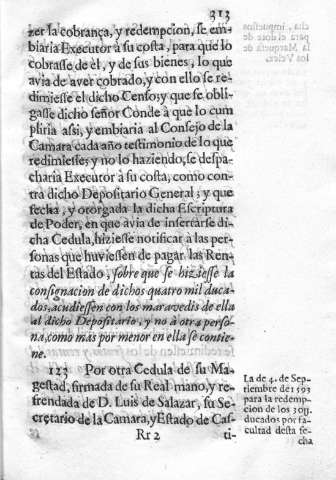 313
zer la cobrança, y redempcion, se em-
biaria Executor à su costa, para que lo
cobrasse de èl, y de sus bienes, lo que
avia de aver cobrado, y con ello se re-
dimiesse el dicho Censo; y que se obli-
gasse dicho señor Conde à que lo cum
pliria assi, y embiaria al Consejo de la
Camara cada año testimonio de lo que
redimiesse; y no lo haziendo, se despa-
charia Executor à su costa, como con-
tra dicho Depositario General; y que
fecha, y otorgada la dicha Escriptura
de Poder, en que avia de insertarse di-
cha Cedula, hiziesse notificar à las per-
sonas que huviessen de pagar las Ren-
tas del Estado, sobre que se hiziesse la
consignacion de dichos quatro mil duca-
dos, acudiessen con los maravedis de ella
al dicho Depositario, y no à otra perso-
na, como mas por menor en ella se contie-
ne.
123 Por otra Cedula de su Ma-
gestad, firmada de su Real mano, y re-
frendada de D. Luis de Salazar, su Se-
cretario de la Camara, y Estado de Cas-
Rr 2
ti-
La de 4. de Sep-
tiembre de 1593
para la redemp-
cion de los 30U.
ducados por fa-
cultad desta fe-
cha